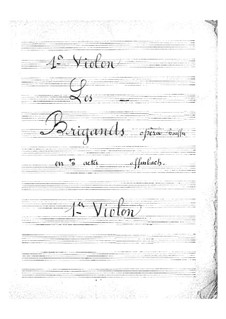 1er Violon
Les
Brigands opéra bouffe
en 3 actes offenbach.
1er Violon